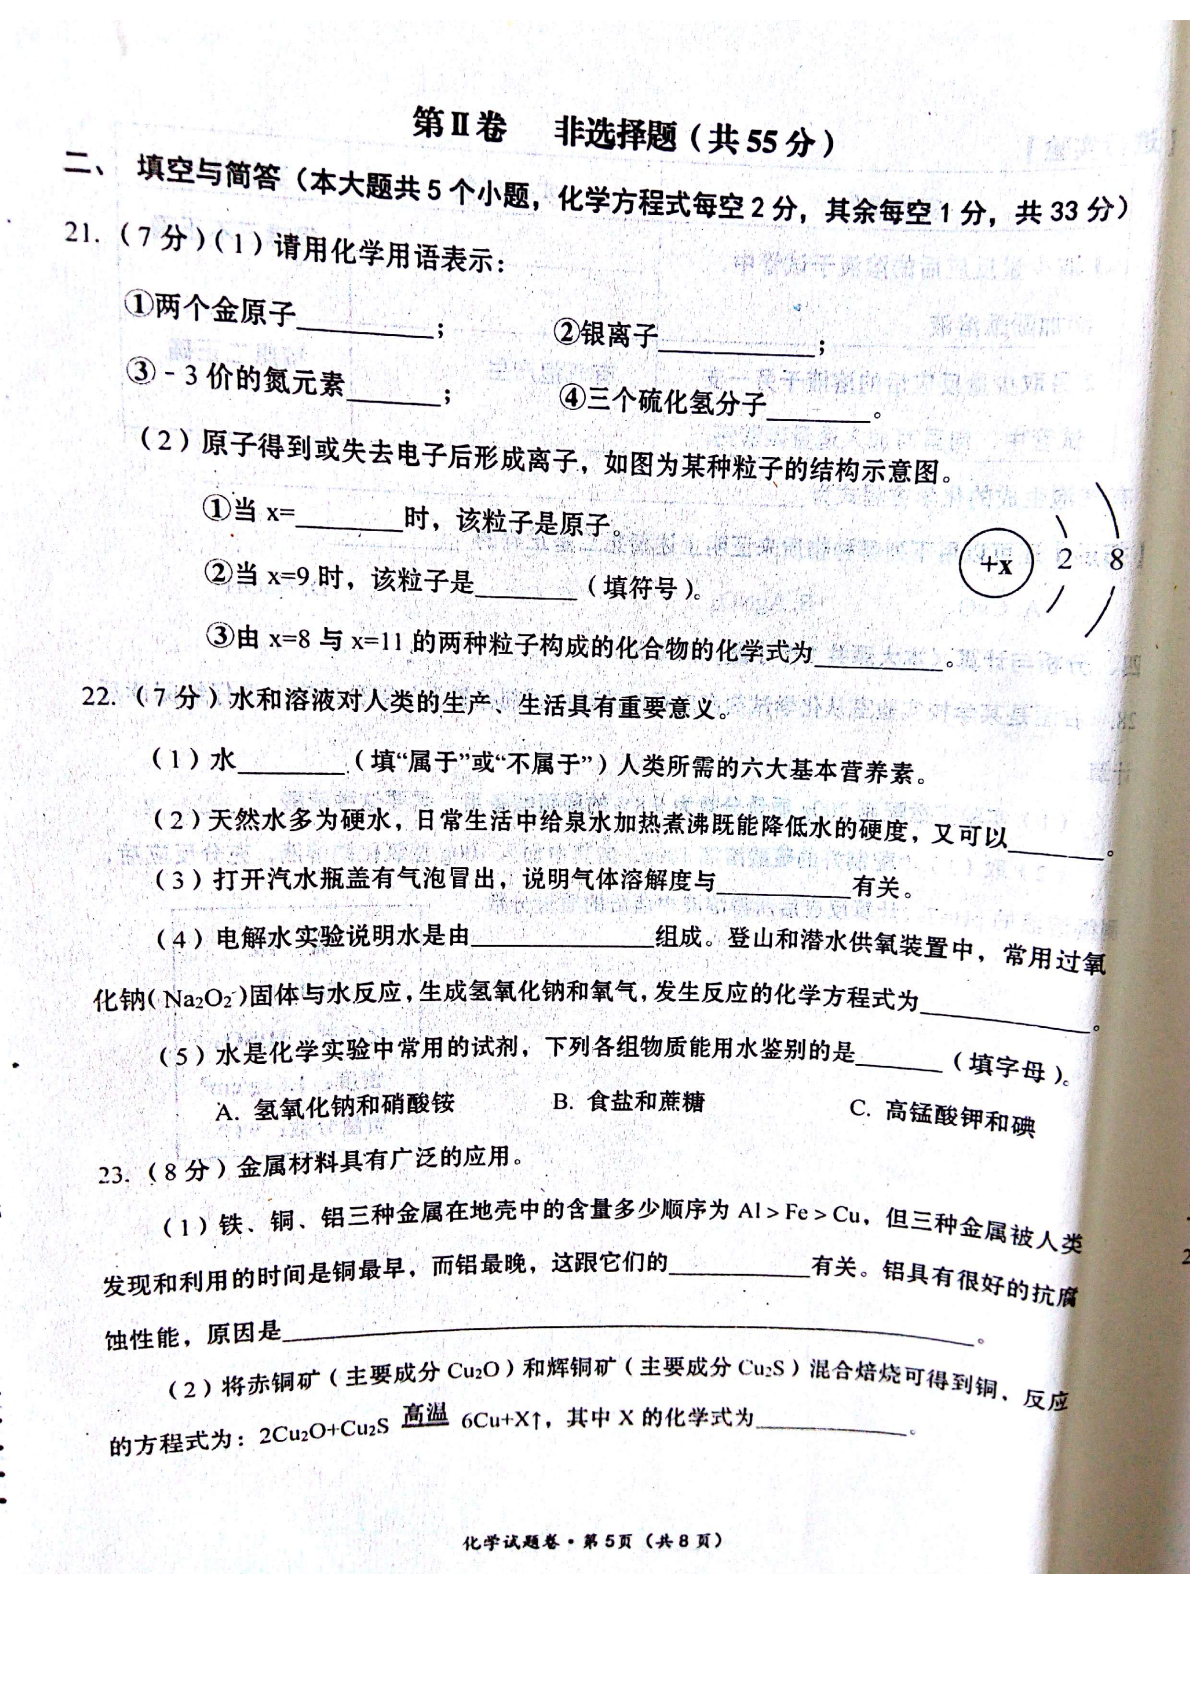 第Ⅱ卷 非选择题(共55分)
二、 填空与简答(本大题共5个小题,化学方程式每空2分,其余每空1分,共33分)
21.(7分)(1)请用化学用语表示:
①两个金原子________; ②银离子________;
③-3价的氮元素________; ④三个硫化氢分子________。
(2)原子得到或失去电子后形成离子,如图为某种粒子的结构示意图。
①当x=________时,该粒子是原子。
+x 2 8
②当x=9时,该粒子是________(填符号)。
③由x=8与x=11的两种粒子构成的化合物的化学式为________。
22.(7分)水和溶液对人类的生产、生活具有重要意义。
(1)水________(填“属于”或“不属于”)人类所需的六大基本营养素。
(2)天然水多为硬水,日常生活中给泉水加热煮沸既能降低水的硬度,又可以________。
(3)打开汽水瓶盖有气泡冒出,说明气体溶解度与________有关。
(4)电解水实验说明水是由________组成。登山和潜水供氧装置中,常用过氧
化钠(Na₂O₂)固体与水反应,生成氢氧化钠和氧气,发生反应的化学方程式为________。
(5)水是化学实验中常用的试剂,下列各组物质能用水鉴别的是________(填字母)。
A. 氢氧化钠和硝酸铵 B. 食盐和蔗糖 C. 高锰酸钾和碘
23.(8分)金属材料具有广泛的应用。
(1)铁、铜、铝三种金属在地壳中的含量多少顺序为Al>Fe>Cu,但三种金属被人类
发现和利用的时间是铜最早,而铝最晚,这跟它们的________有关。铝具有很好的抗腐
蚀性能,原因是________。
(2)将赤铜矿(主要成分Cu₂O)和辉铜矿(主要成分Cu₂S)混合焙烧可得到铜,反应
的方程式为:2Cu₂O+Cu₂S 高温 6Cu+X↑,其中X的化学式为________。
化学试题卷·第5页(共8页)